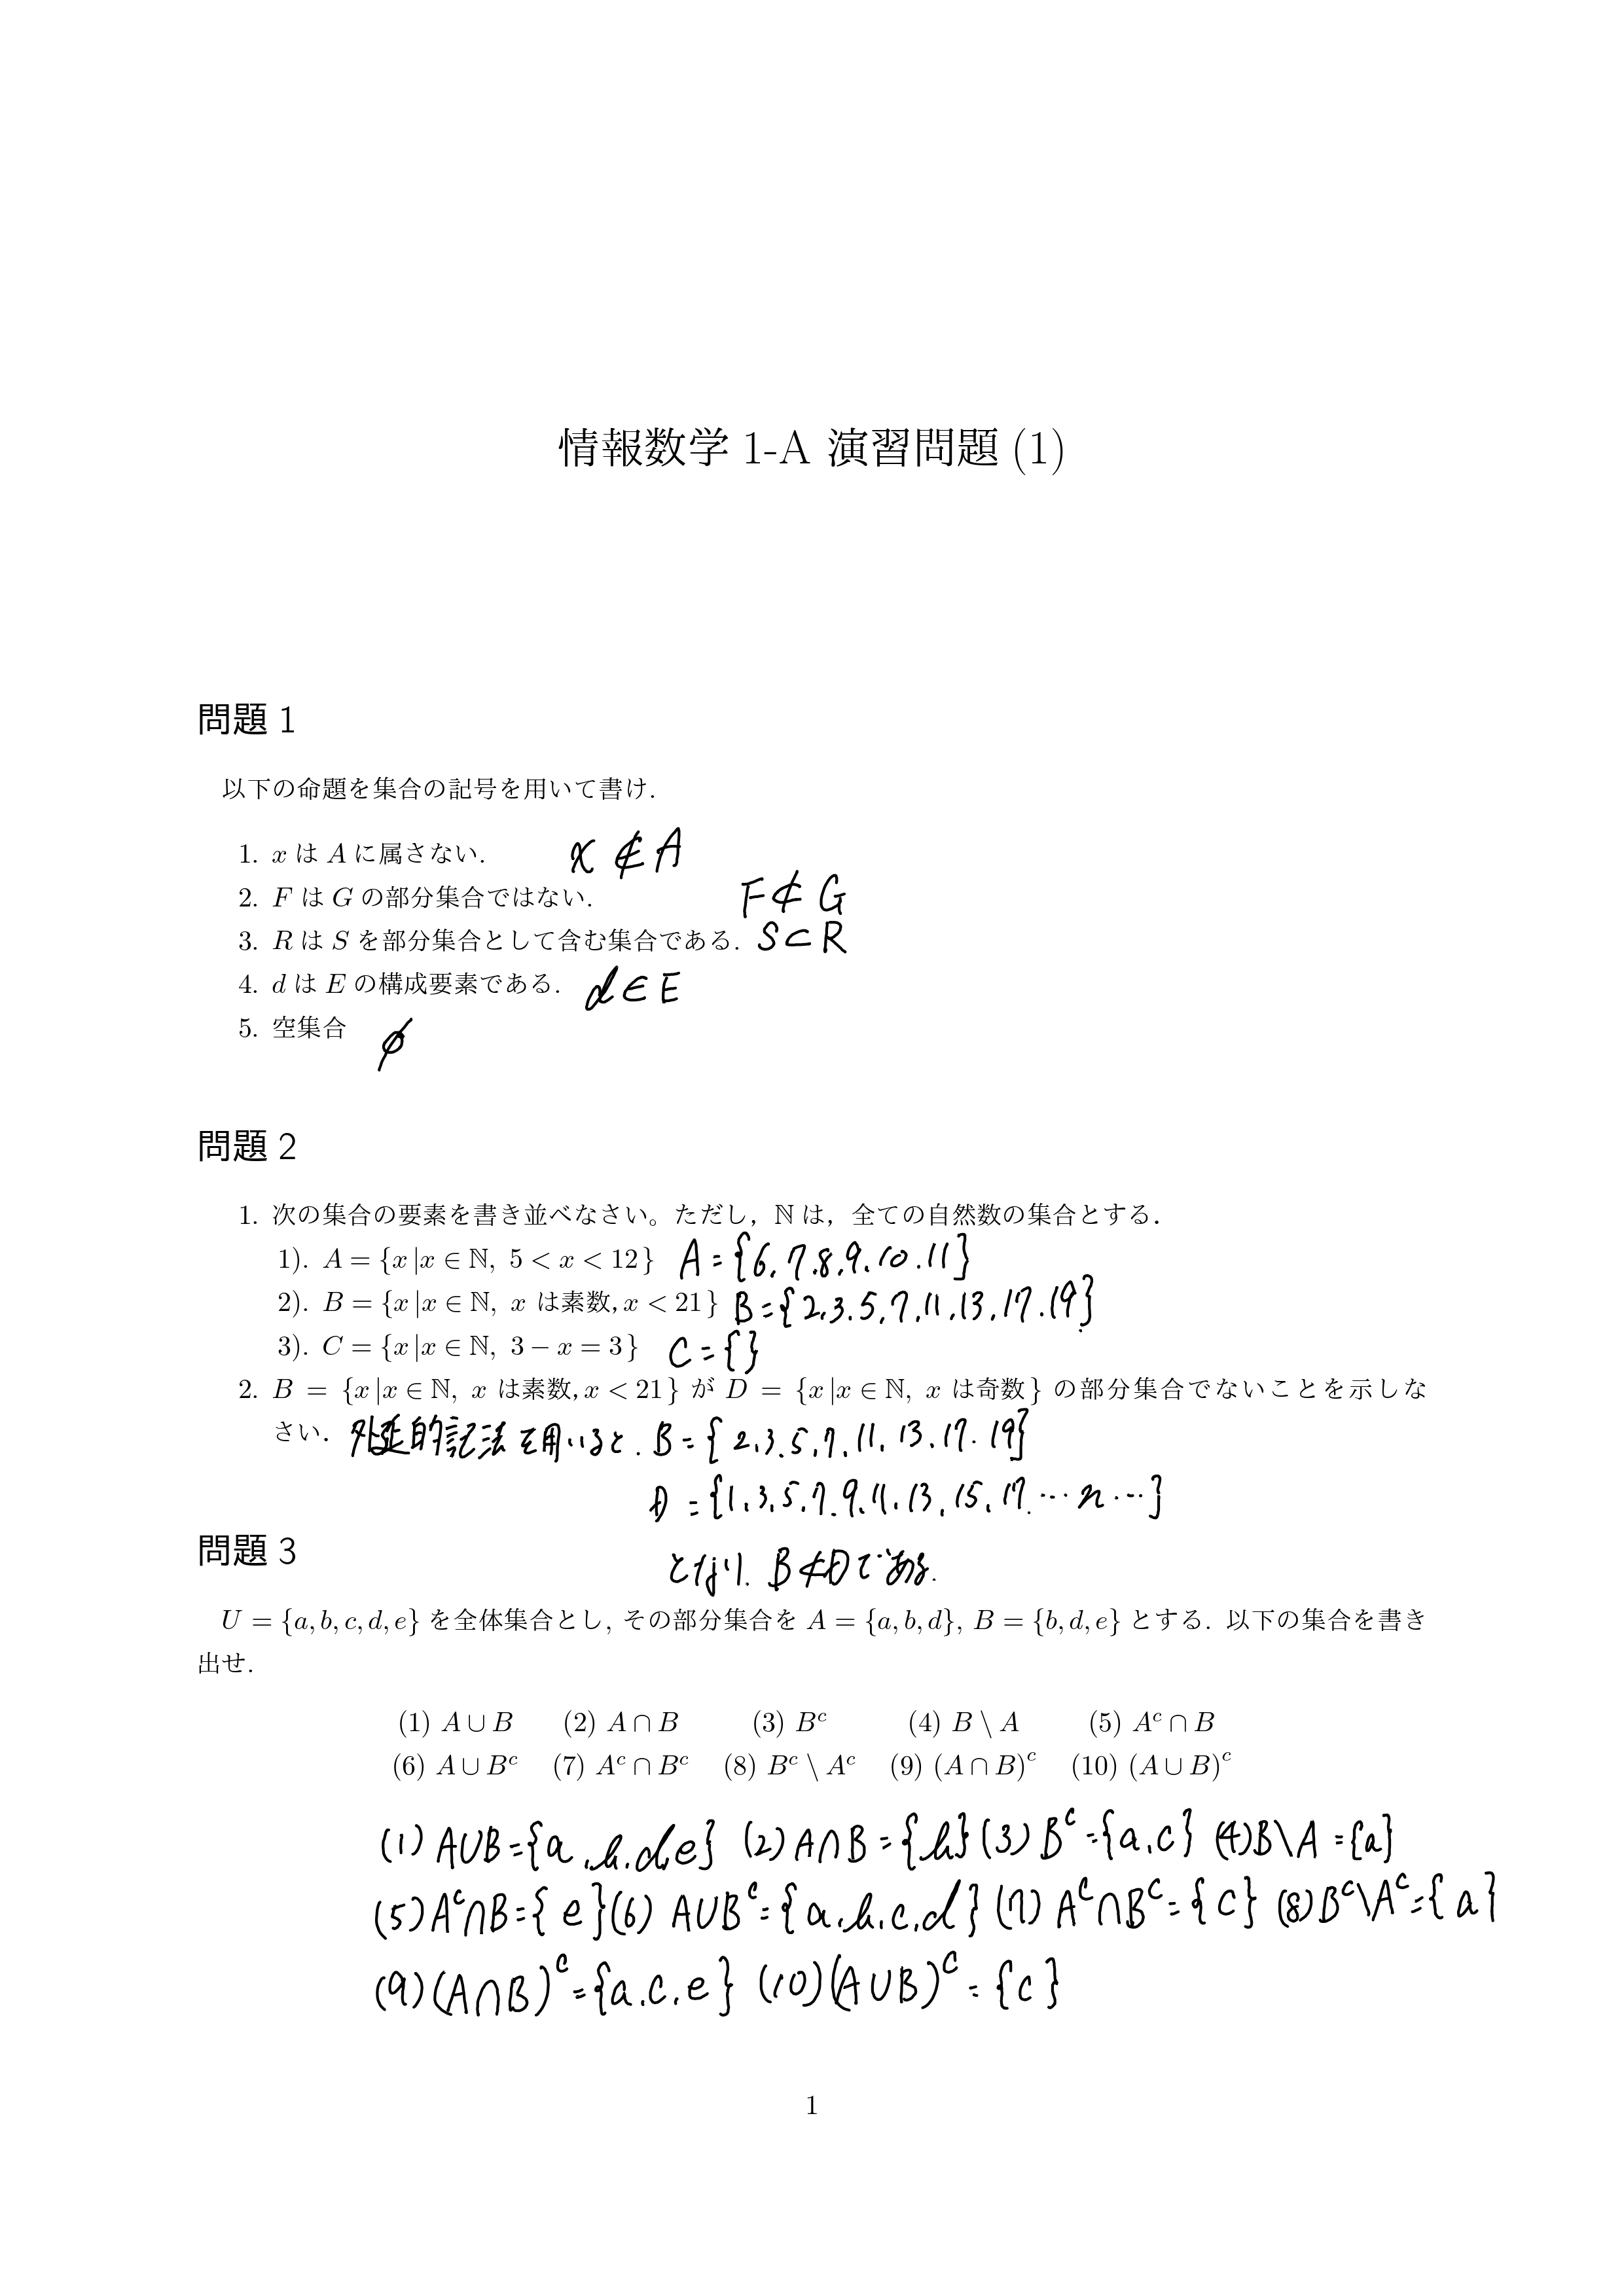 情報数学 1-A 演習問題 (1)
問題 1
以下の命題を集合の記号を用いて書け.
1. x は A に属さない. x ∉ A
2. F は G の部分集合ではない. F ⊄ G
3. R は S を部分集合として含む集合である. S ⊂ R
4. d は E の構成要素である. d ∈ E
5. 空集合 φ
問題 2
1. 次の集合の要素を書き並べなさい。ただし，ℕ は，全ての自然数の集合とする.
1). A = {x |x ∈ ℕ, 5 < x < 12} A = {6, 7, 8, 9, 10, 11}
2). B = {x |x ∈ ℕ, x は素数, x < 21} B = {2, 3, 5, 7, 11, 13, 17, 19}
3). C = {x |x ∈ ℕ, 3 − x = 3} C = { }
2. B = {x |x ∈ ℕ, x は素数, x < 21} が D = {x |x ∈ ℕ, x は奇数} の部分集合でないことを示しな
さい. 外延的記法を用いると. B = {2, 3, 5, 7, 11, 13, 17, 19}
D = {1, 3, 5, 7, 9, 11, 13, 15, 17, … n …}
問題 3
となり. B ⊄ D である.
U = {a, b, c, d, e} を全体集合とし, その部分集合を A = {a, b, d}, B = {b, d, e} とする. 以下の集合を書き
出せ.
(1) A ∪ B (2) A ∩ B (3) Bᶜ (4) B \ A (5) Aᶜ ∩ B
(6) A ∪ Bᶜ (7) Aᶜ ∩ Bᶜ (8) Bᶜ \ Aᶜ (9) (A ∩ B)ᶜ (10) (A ∪ B)ᶜ
(1) A∪B = {a, b, d, e} (2) A∩B = {b} (3) Bᶜ = {a, c} (4) B\A = {a}
(5) Aᶜ∩B = {e} (6) A∪Bᶜ = {a, b, c, d} (7) Aᶜ∩Bᶜ = {c} (8) Bᶜ\Aᶜ = {a}
(9) (A∩B)ᶜ = {a, c, e} (10) (A∪B)ᶜ = {c}
1